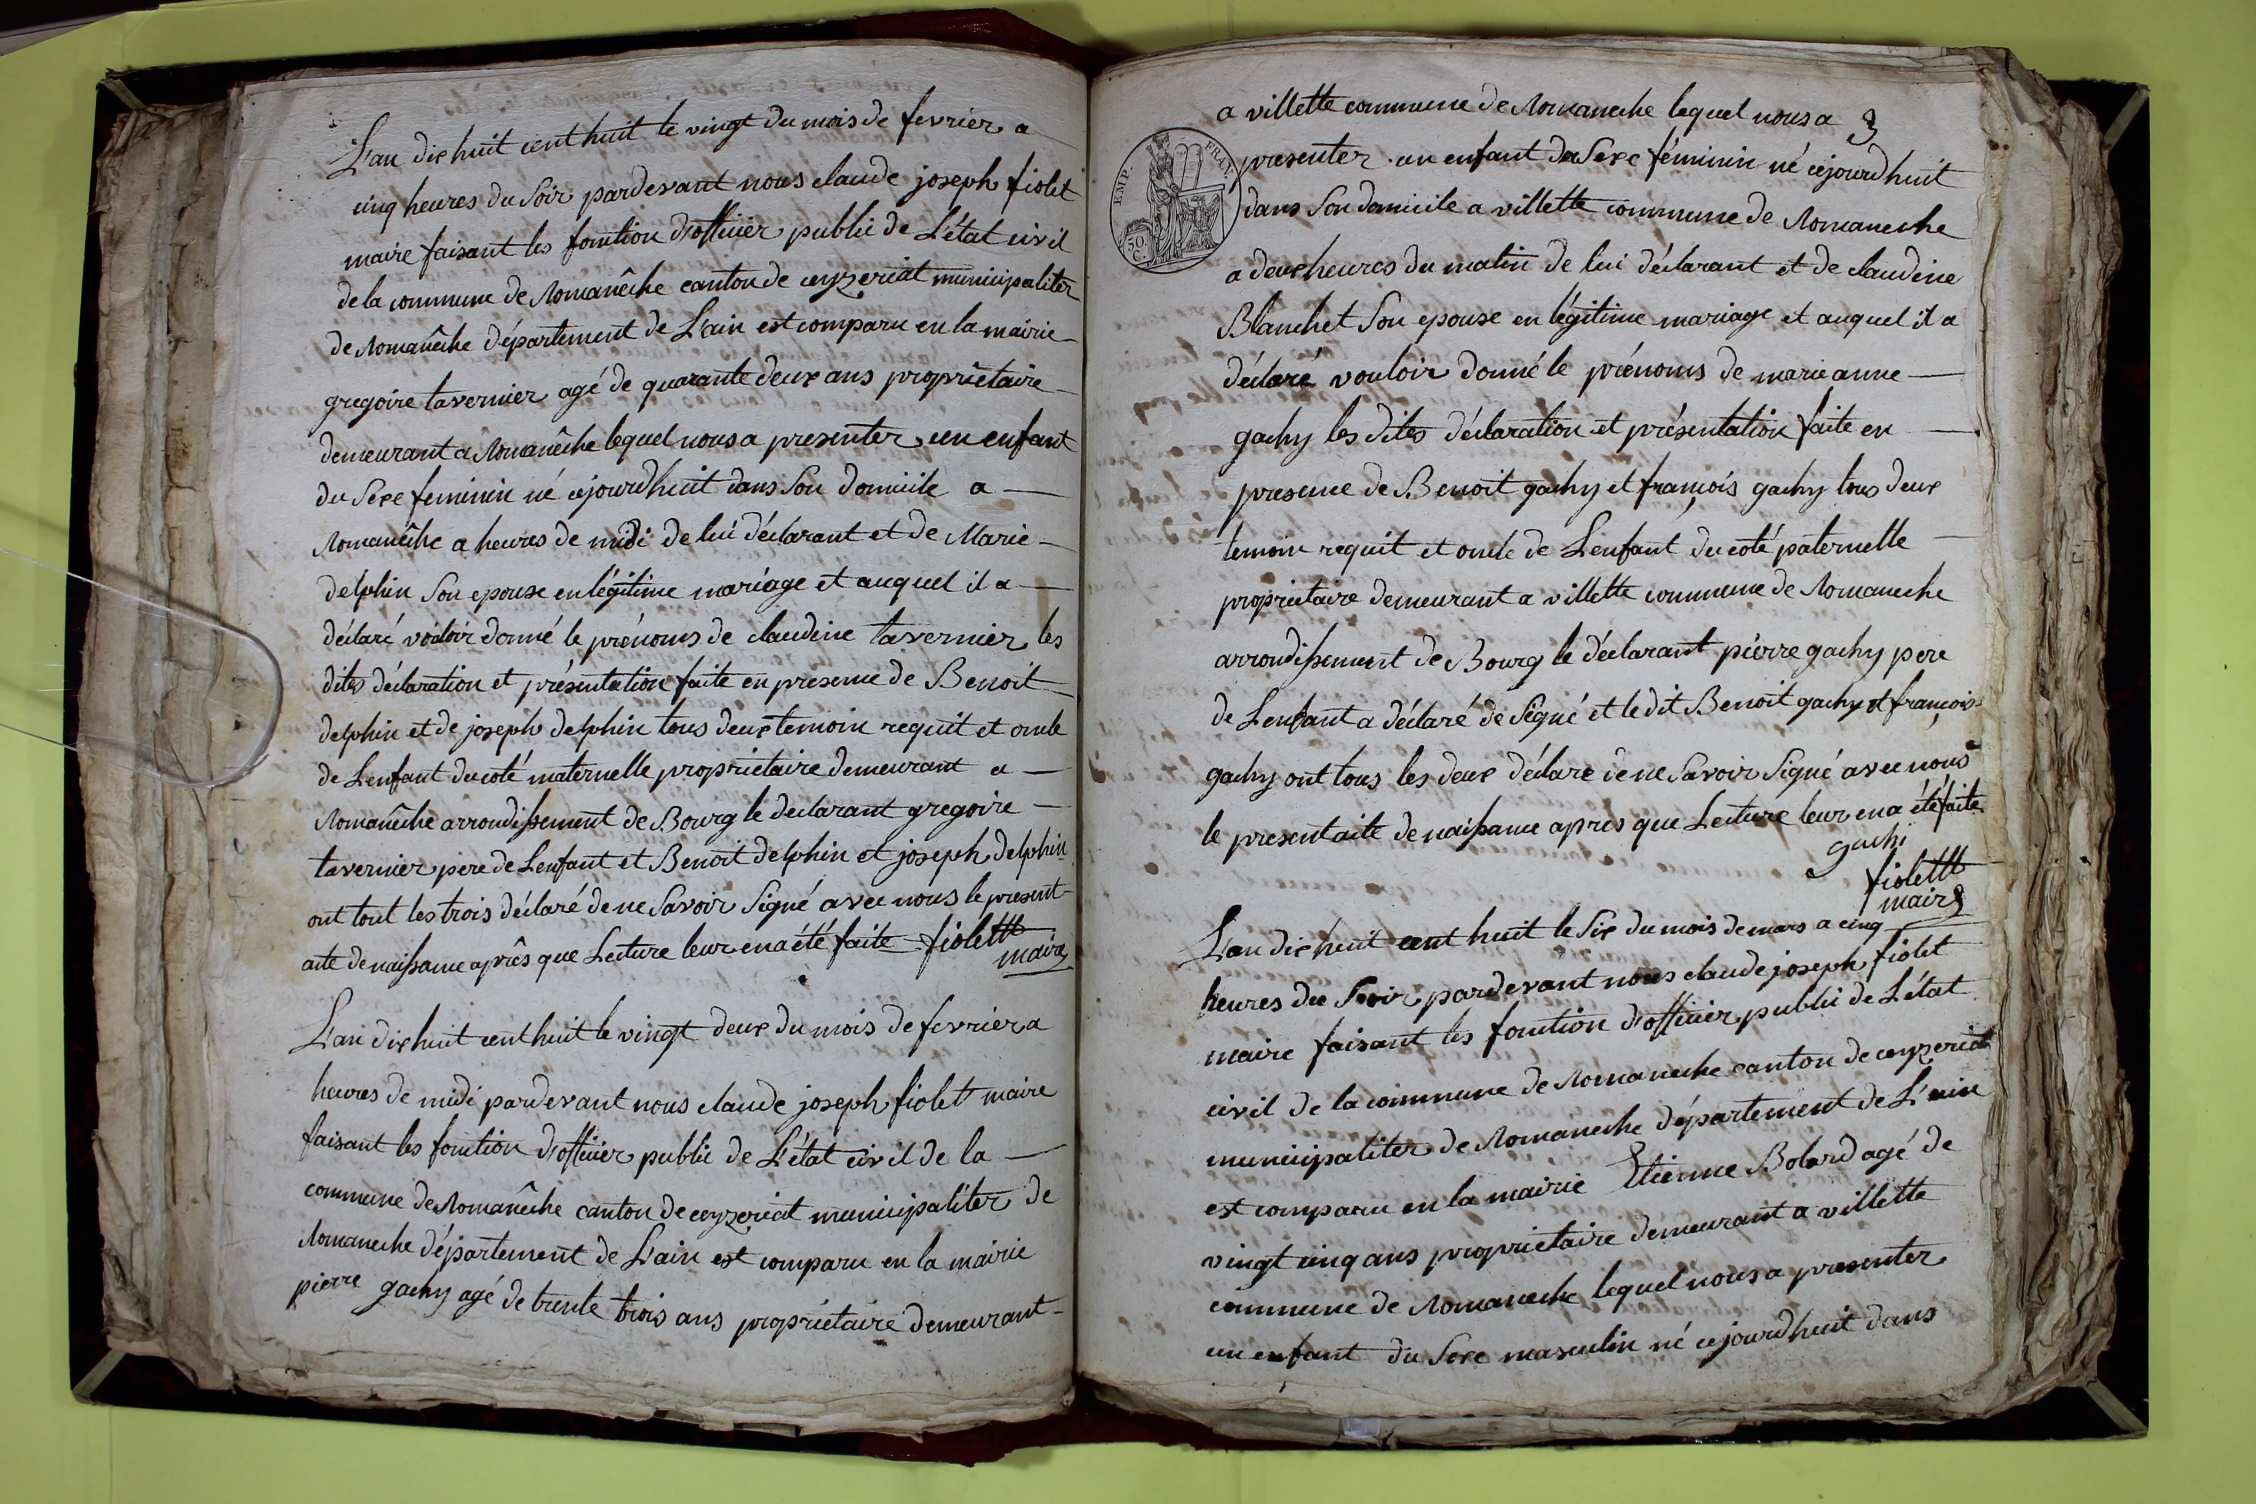 L'an dix huit cent huit le vingt du mois de fevrier a
cinq heures du Soir pardevant nous claude joseph fiolet
maire faisant les fonction d'officier public de L'état civil
de la commune de Romanêche canton de ceyzeriat municipaliter
de Romanêche département de L'ain est comparu en la mairie
gregoire tavernier agé de quarante deux ans propriétaire
demeurant a Romanêche lequel nous a presenter un enfant
du Sexe feminin né cejourd'huit dans Son domicile a
Romanêche a heures de midi de lui déclarant et de Marie
delphin Son epouse en légitime mariage et auquel il a
déclaré vouloir donné le prénoms de claudine tavernier les
dites déclaration et présentation faite en presence de Benoit
delphin et de joseph delphin tous deux temoin requit et oncle
de L'enfant du coté maternelle propriétaire demeurant a
Romanêche arrondissement de Bourg le declarant gregoire
tavernier pere de L'enfant et Benoit delphin et joseph delphin
ont tout les trois déclaré de ne Savoir Signé avec nous le present
acte de naissance aprês que Lecture leur en a été faite fiolettt
maire
L'an dix huit cent huit le vingt deux du mois de fevrier a
heures de midi pardevant nous claude joseph fiolet maire
faisant les fonction d'officier public de L'état civil de la
commune de Romanêche canton de ceyzeriat municipaliter de
Romaneche département de L'ain est comparu en la mairie
pierre gachy agé de trente trois ans propriétaire demeurant
3
a villette commune de Romaneche lequel nous a
EMP. FRAN.
50 C.
presenter un enfant du Sexe féminin né cejourd'huit
dans Son domicile a villette commune de Romaneche
a deux heures du matin de lui déclarant et de claudine
Blanchet Son epouse en légitime mariage et auquel il a
déclaré vouloir donné le prénoms de marie anne
gachy les dites déclaration et présentation faite en
presence de Benoit gachy et françois gachy tous deux
temoin requit et oncle de L'enfant du coté paternelle
propriétaire demeurant a villette commune de Romaneche
arrondissement de Bourg le déclarant pierre gachy pere
de L'enfant a déclaré de Signé et le dit Benoit gachy et françois
gachy ont tous les deux déclaré de ne Savoir Signé avec nous
le present acte de naissance apres que Lecture leur en a été faite
gachi
fiolettt
maire
L'an dix huit cent huit le Six du mois de mars a cinq
heures du Soir pardevant nous claude joseph fiolet
maire faisant les fonction d'officier public de L'état
civil de la commune de Romaneche canton de ceyzeriat
municipaliter de Romaneche département de L'ain
est comparu en la mairie Etienne Bolard agé de
vingt cinq ans propriétaire demeurant a villette
commune de Romaneche lequel nous a presenter
un enfant du Sexe masculin né cejourd'huit dans